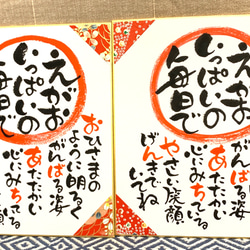 えがお
いっぱいの
毎日で
おひさまの
ように明るく
がんばる姿
あたたかい
心にみちている
えがお
いっぱいの
毎日で
やさしい笑顔
げんきでね
いてね
がんばる姿
あたたかい
心にみちている